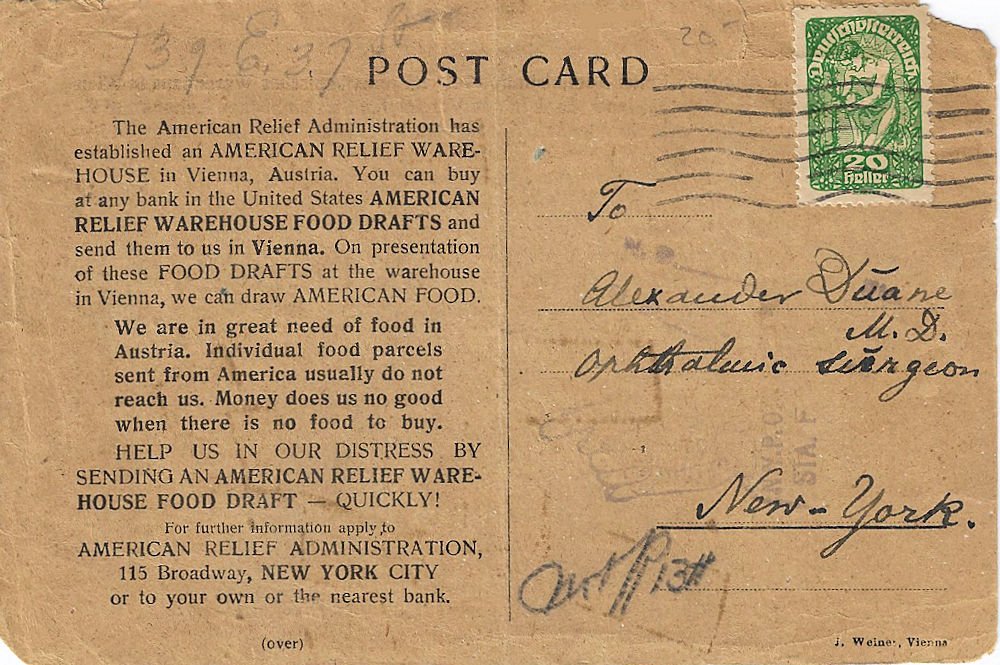 139 E. 37 St
20
POST CARD
Deutschösterreich
20
Heller
The American Relief Administration has
established an AMERICAN RELIEF WARE-
HOUSE in Vienna, Austria. You can buy
at any bank in the United States AMERICAN
RELIEF WAREHOUSE FOOD DRAFTS and
send them to us in Vienna. On presentation
of these FOOD DRAFTS at the warehouse
in Vienna, we can draw AMERICAN FOOD.
We are in great need of food in
Austria. Individual food parcels
sent from America usually do not
reach us. Money does us no good
when there is no food to buy.
HELP US IN OUR DISTRESS BY
SENDING AN AMERICAN RELIEF WARE-
HOUSE FOOD DRAFT — QUICKLY!
For further information apply to
AMERICAN RELIEF ADMINISTRATION,
115 Broadway, NEW YORK CITY
or to your own or the nearest bank.
(over)
To
Alexander Duane
M. D.
Ophthalmic surgeon
N.Y.P.O.
STA. F
New-York.
J. Weiner, Vienna